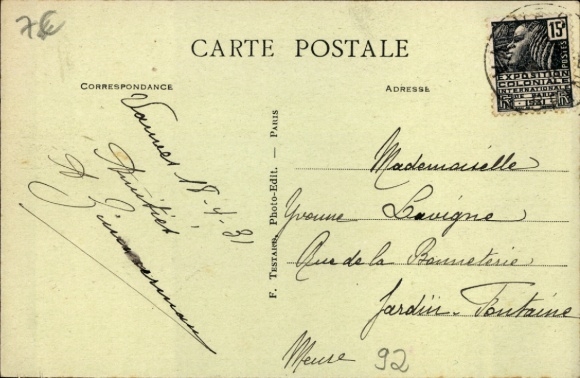 7€
CARTE POSTALE
CORRESPONDANCE
ADRESSE
15c
POSTES
EXPOSITION
COLONIALE
INTERNATIONALE
DE PARIS
1931
Vannes 18-4-31
Amitiés
F. TESTARD, Photo-Edit. — PARIS
Mademoiselle
Yvonne Lavigne
Rue de la Bonneterie
Jardin-Fontaine
Meuse
92